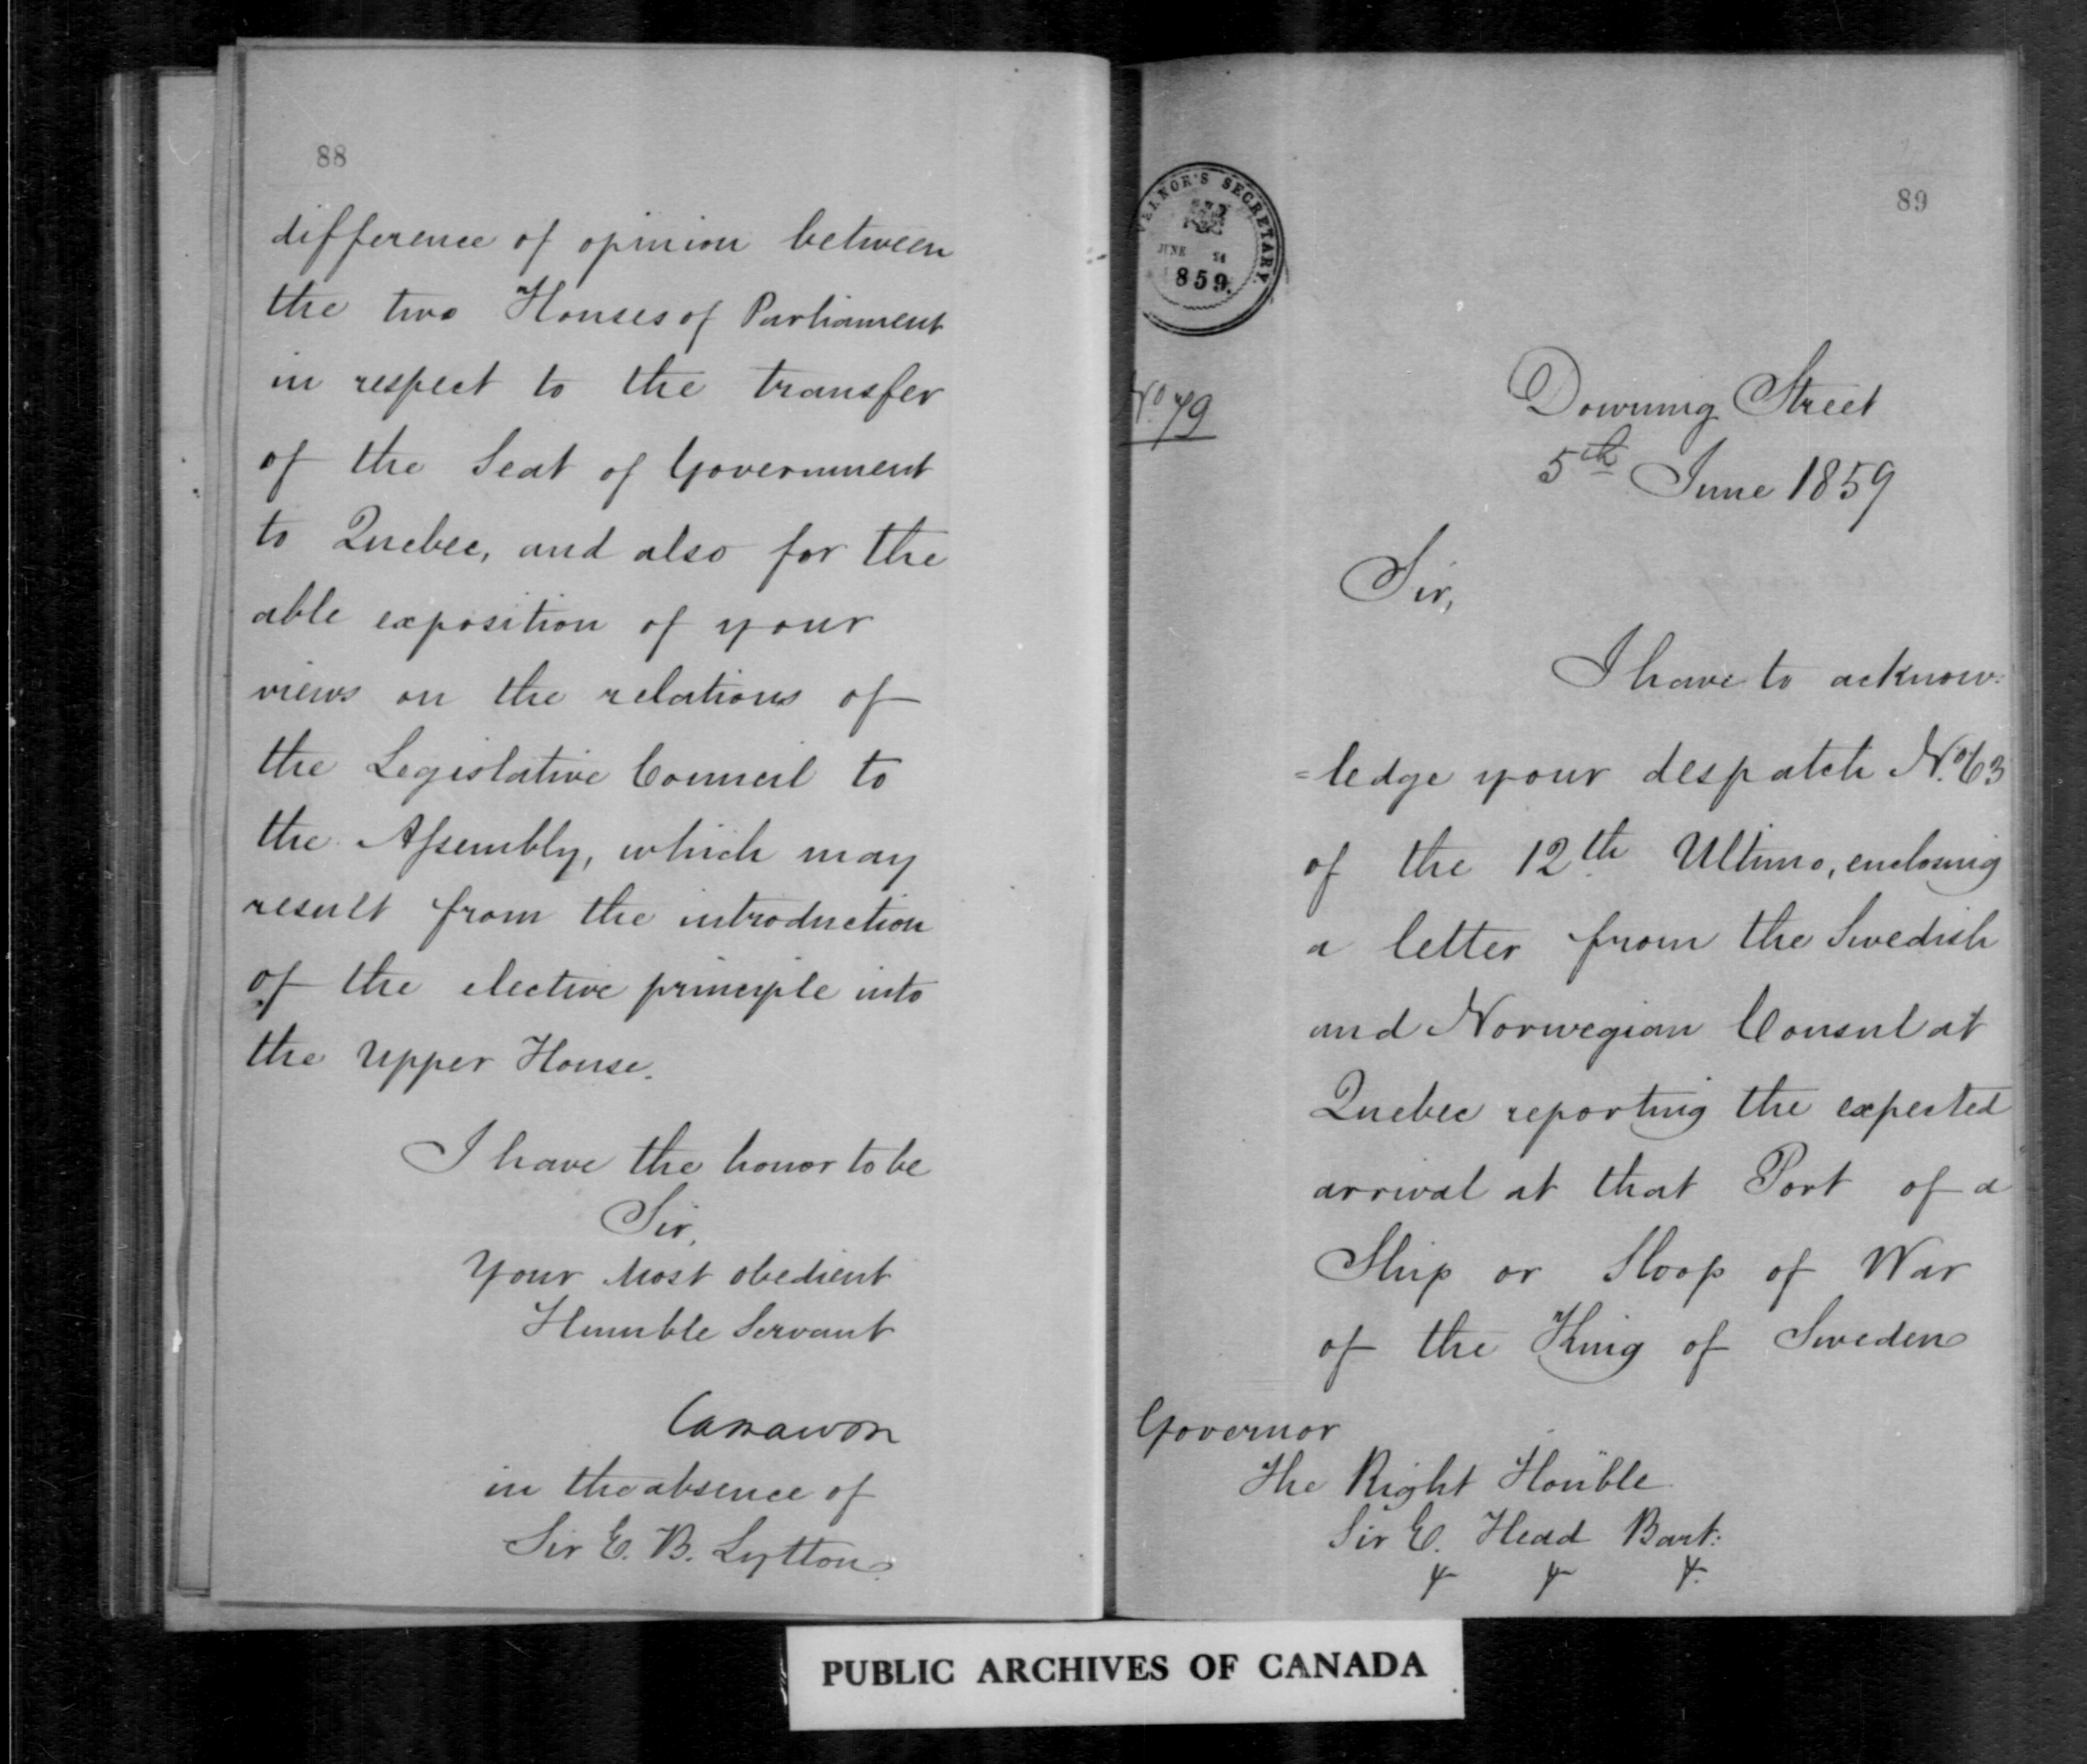 88
difference of opinion between
the two Houses of Parliament
in respect to the transfer
of the Seat of Government
to Quebec, and also for the
able exposition of your
views on the relations of
the Legislative Council to
the Assembly, which may
result from the introduction
of the elective principle into
the Upper House.
I have the honor to be
Sir,
Your Most obedient
Humble Servant
Carnarvon
in the absence of
Sir E. B. Lytton
89
VERNOR'S SECRETARY
JUNE
1859.
No. 79
Downing Street
5th June 1859
Sir,
I have to acknow:
=ledge your despatch No. 63
of the 12th Ultimo, enclosing
a letter from the Swedish
and Norwegian Consul at
Quebec reporting the expected
arrival at that Port of a
Ship or Sloop of War
of the King of Sweden
Governor
The Right Honble
Sir E. Head Bart:
PUBLIC ARCHIVES OF CANADA